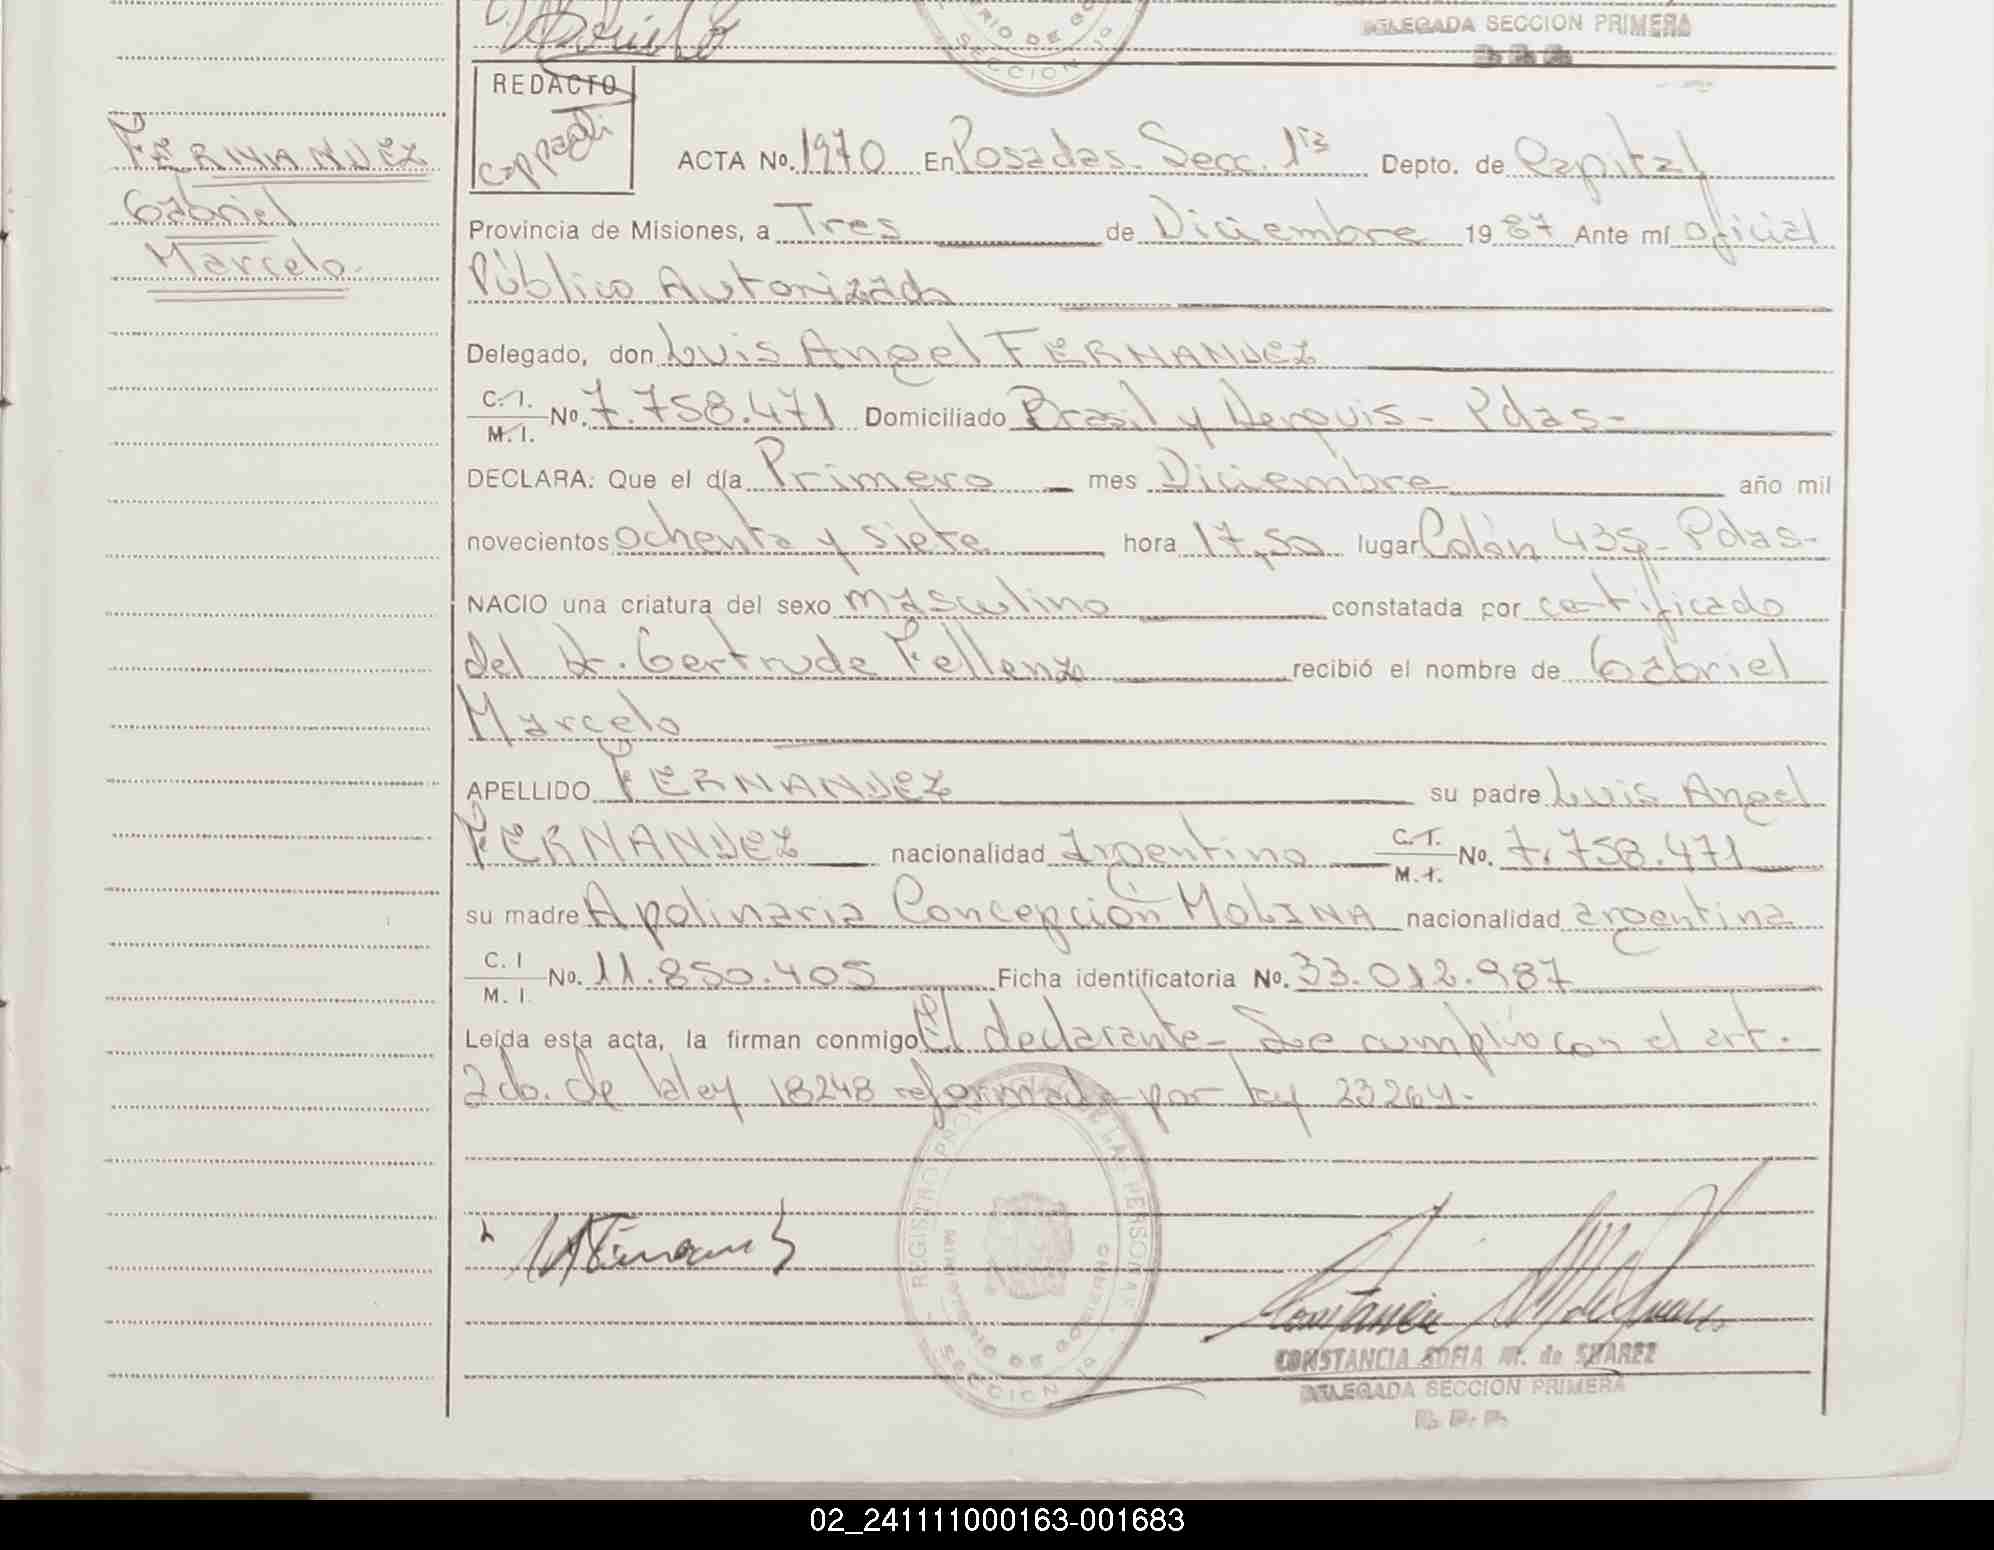 DELEGADA SECCION PRIMERA
R. P. P.
RIO DE GO
SECCION 1a
REDACTO
FERNANDEZ
Gabriel
Marcelo
ACTA No. 1970 En Posadas - Secc. 1ra Depto. de Capital
Provincia de Misiones, a Tres de Diciembre 1987 Ante mí oficial
Público Autorizado
Delegado, don Luis Angel FERNANDEZ
C. I. / M. I. No. 7.758.471 Domiciliado Brasil y Derquis - Pdas -
DECLARA: Que el día Primero mes Diciembre año mil
novecientos ochenta y siete hora 17,50 lugar Colón 435 - Pdas -
NACIO una criatura del sexo masculino constatada por certificado
del Dr. Gertrude Fellenz recibió el nombre de Gabriel
Marcelo
APELLIDO FERNANDEZ su padre Luis Angel
FERNANDEZ nacionalidad argentino C. I. / M. I. No. 7.758.471
su madre Apolinaria Concepción MOLINA nacionalidad argentina
C. I / M. I. No. 11.850.405 Ficha identificatoria No. 33.012.987
Leída esta acta, la firman conmigo El declarante - Se cumplió con el art.
2do. de la ley 18248 reformada por ley 23264 -
REGISTRO PRO DE LAS PERSONAS
MINISTERIO DE GOBIERNO
SECCION 1a
CONSTANCIA SOFIA M. de SUAREZ
DELEGADA SECCION PRIMERA
R. P. P.
02_241111000163-001683